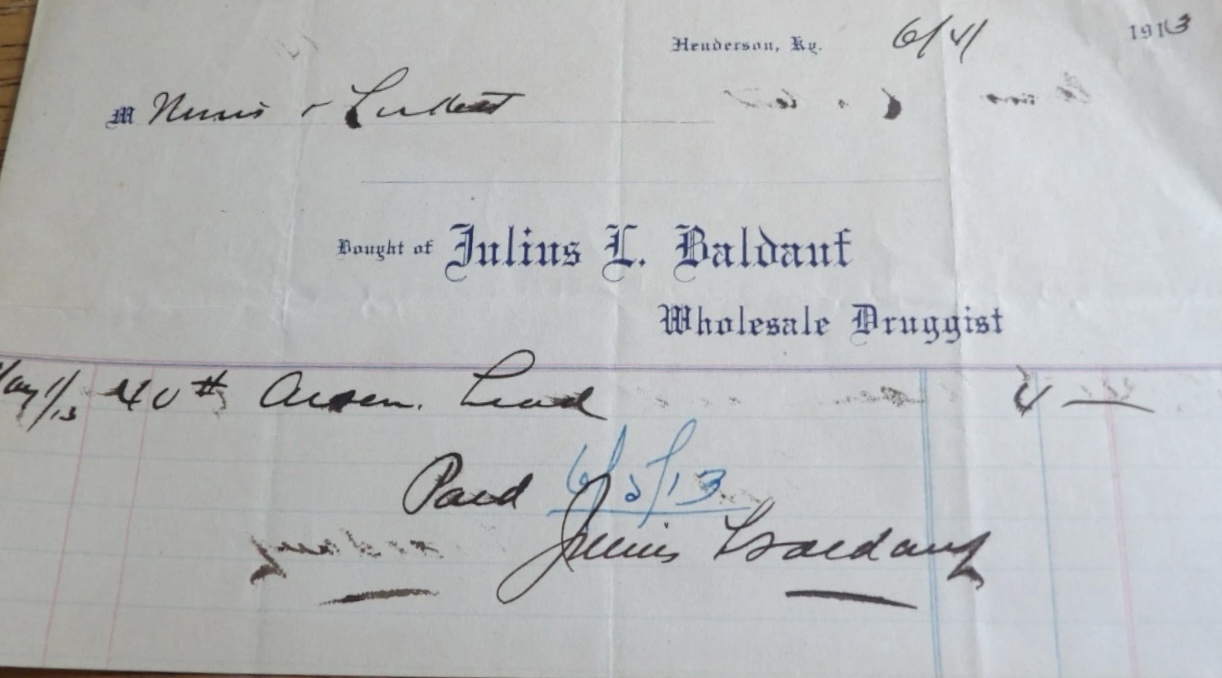 Henderson, Ky. 6/4/ 1913
M
Bought of Julius L. Baldauf
Wholesale Druggist
May 1/13 40# Arsen. Lead 4 —
Paid 6/5/13
Julius Baldauf